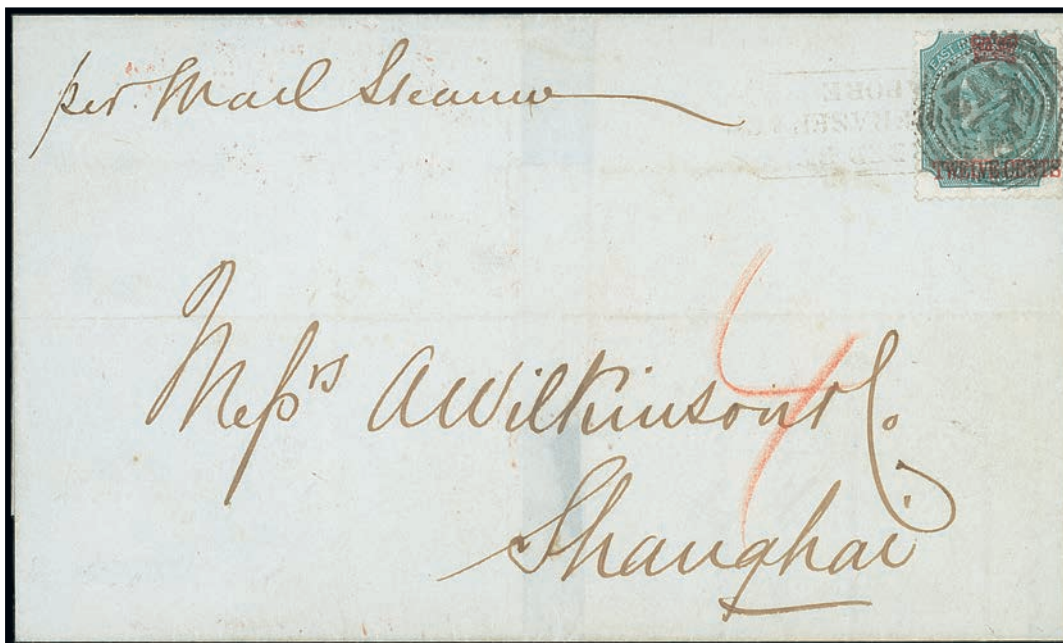 per Mail Steamer
EAST IN
TWELVE CENTS
4
Messrs A Wilkinson & Co.
Shanghai